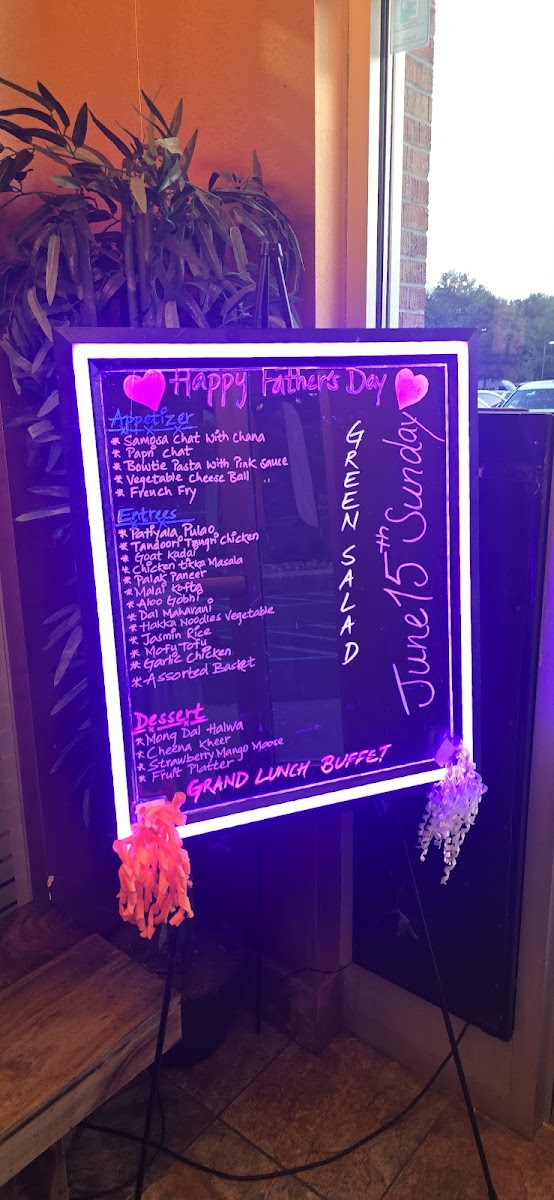 Happy Father's Day
Appetizer
* Samosa Chat with Chana
* Papri Chat
* Bowtie Pasta with Pink Sauce
* Vegetable Cheese Ball
* French Fry
Entrees
* Patiyala Pulao
* Tandoori Tangri Chicken
* Goat Kadai
* Chicken tikka Masala
* Palak Paneer
* Malai Kofta
* Aloo Gobhi
* Dal Maharani
* Hakka Noodles Vegetable
* Jasmin Rice
* Mofu Tofu
* Garlic Chicken
* Assorted Basket
Dessert
* Mong Dal Halwa
* Cheena Kheer
* Strawberry Mango Moose
* Fruit Platter
GRAND LUNCH BUFFET
GREEN SALAD
June 15th Sunday